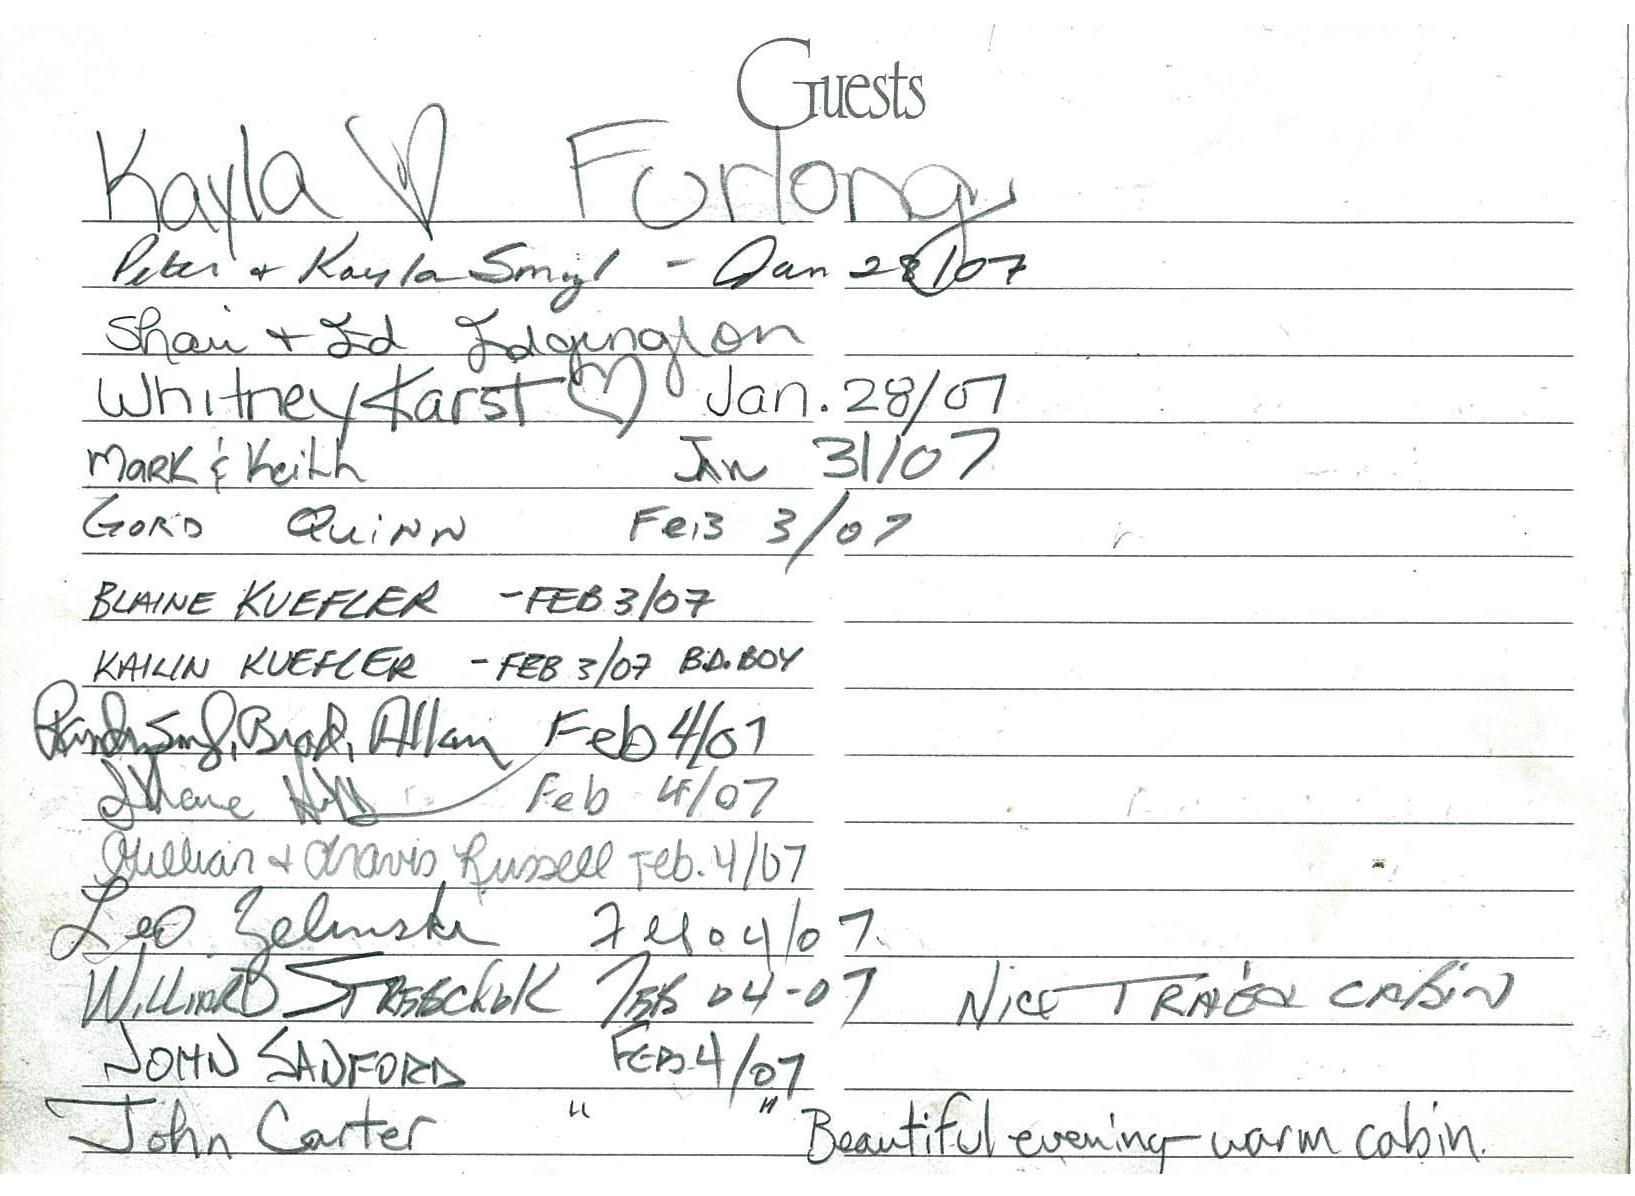 Guests
Kayla ♡ Furlong
Peter + Kayla Smyl - Jan 28/07
Shari + Ed Edgington
Whitney Karst ♡ Jan. 28/07
Mark & Keith Jan 31/07
GORD QUINN FEB 3/07
BLAINE KUEFLER - FEB 3/07
KAILIN KUEFLER - FEB 3/07 B.D. BOY
Brad, Allan Feb 4/07
Shane Feb 4/07
Jillian + Travis Russell Feb. 4/07
Leo Zelinski Feb 04/07
WILLIARD FEB 04-07 NICE CABIN
JOHN SANFORD FEB 4/07
John Carter " " Beautiful evening - warm cabin.